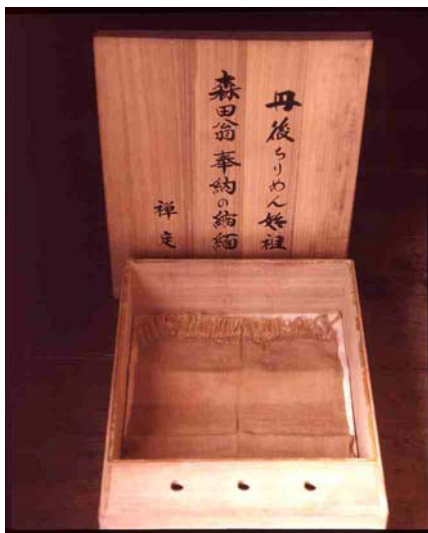 丹後ちりめん始祖
森田翁奉納の縮緬
禅定